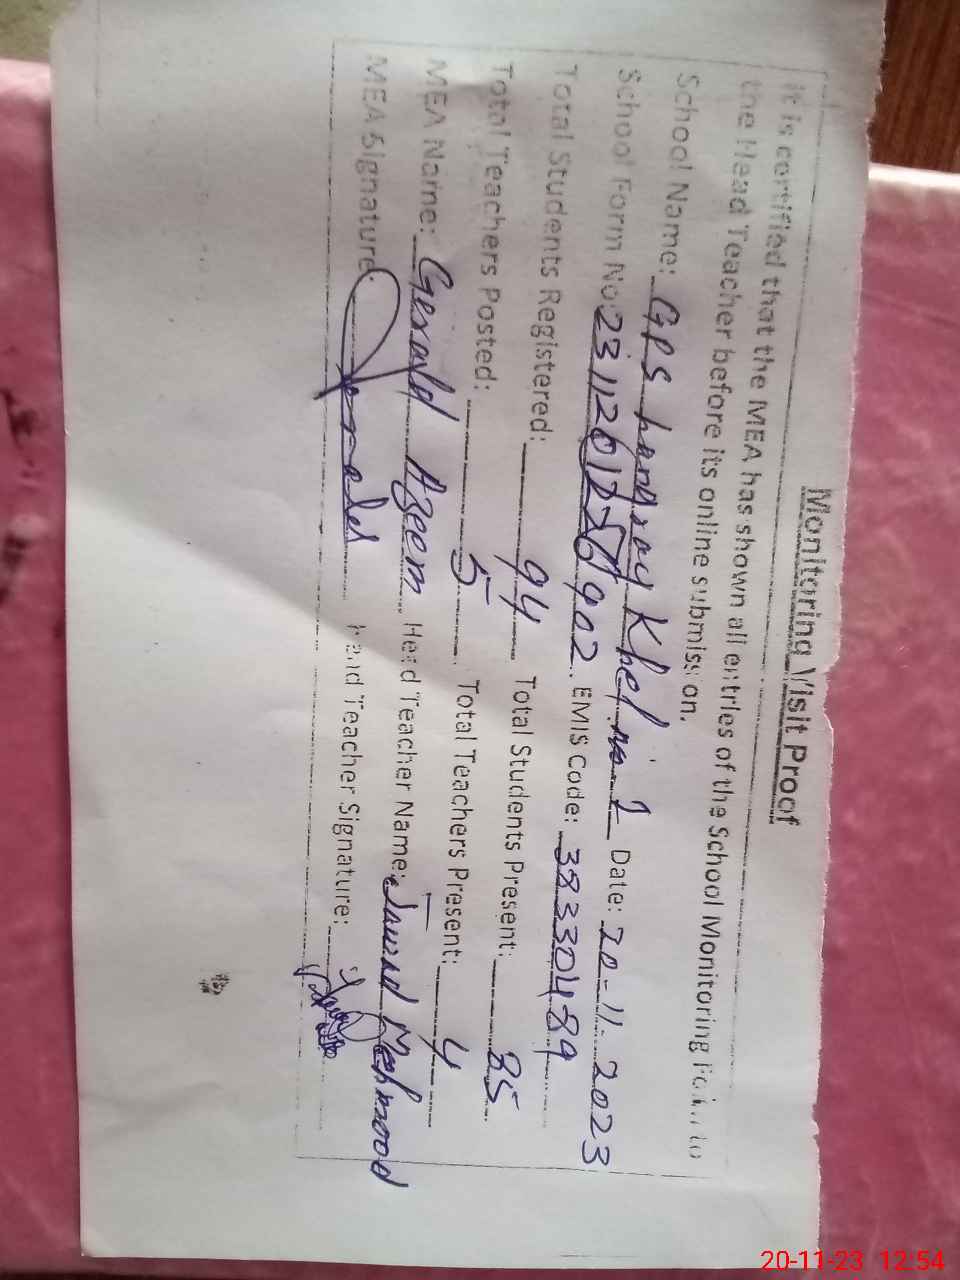 Monitoring Visit Proof
It is certified that the MEA has shown all entries of the School Monitoring to
the Head Teacher before its online submission.
School Name: GPS Khel no 1 Date: 20-11-2023
School Form No: EMIS Code: 38330489
Total Students Registered: 94 Total Students Present: 85
Total Teachers Posted: 5 Total Teachers Present: 4
MEA Name: Gerald Azeem Head Teacher Name: Javed Mehmood
MEA Signature: Head Teacher Signature:
20-11-23 12:54